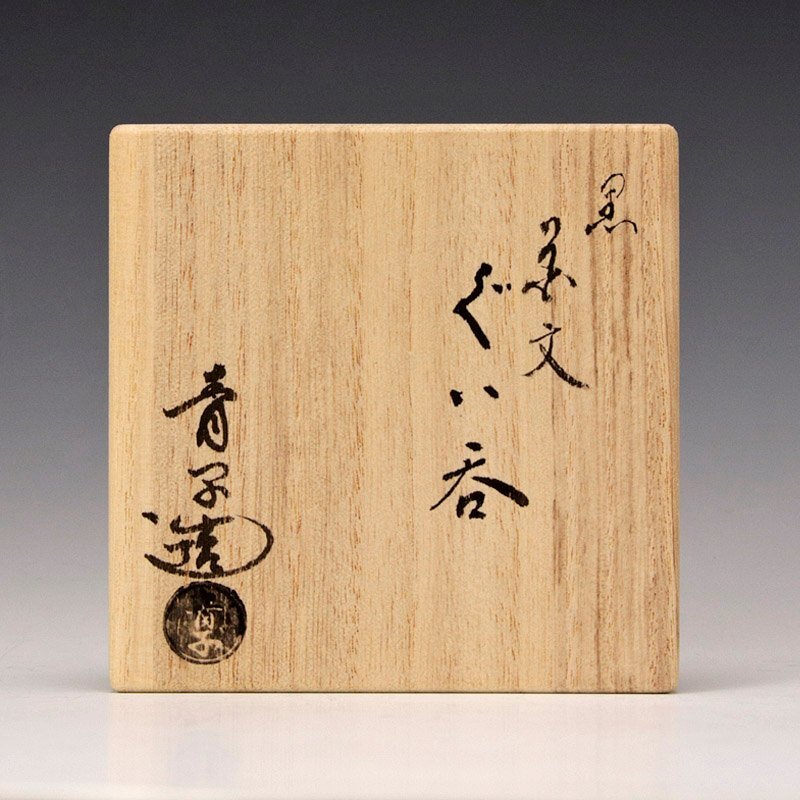 黒
文
ぐい呑
青子造